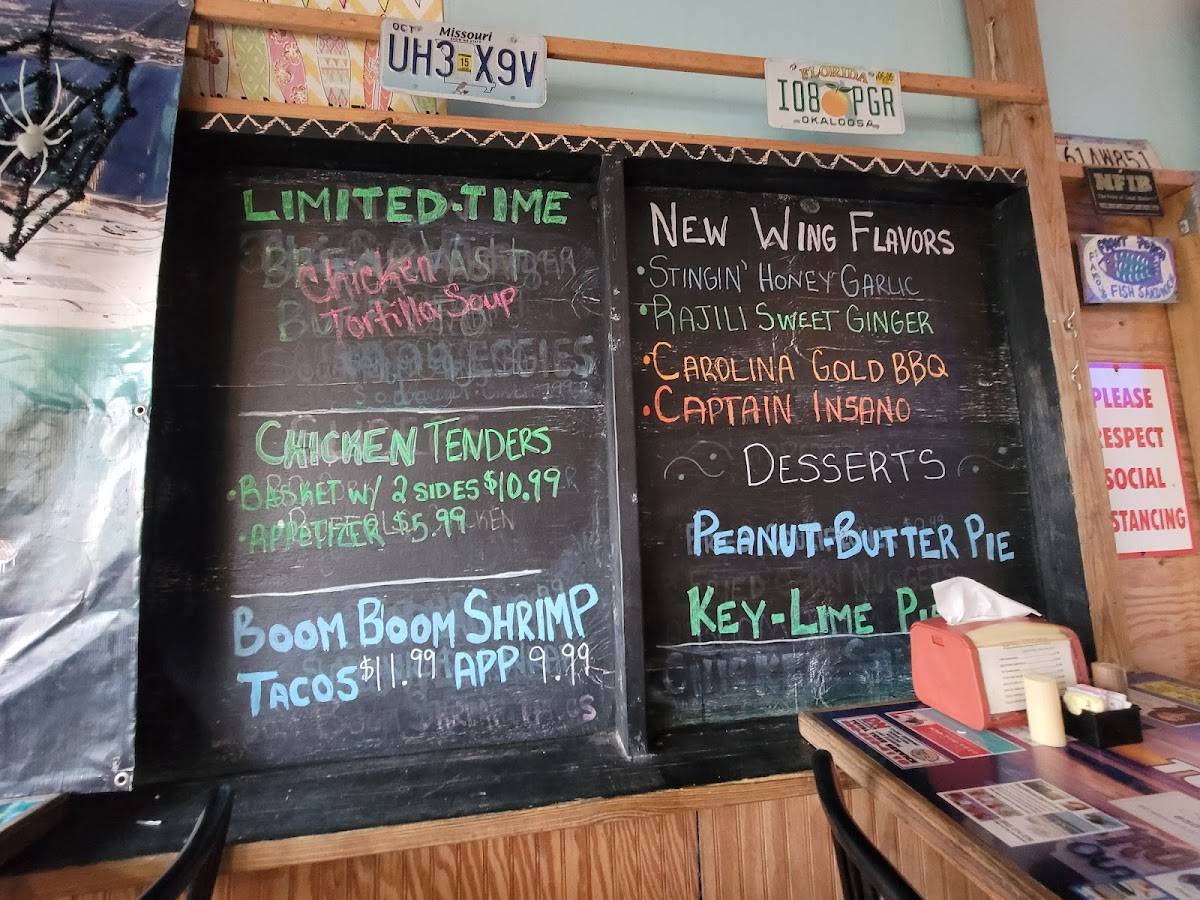 OCT Missouri
UH3 15 X9V
FLORIDA
I08 PGR
OKALOOSA
61AWB51
LIMITED-TIME
Chicken
Tortilla Soup
CHICKEN TENDERS
• BASKET W/ 2 SIDES $10.99
• APPETIZER $5.99
BOOM BOOM SHRIMP
TACOS $11.99 APP 9.99
NEW WING FLAVORS
• STINGIN' HONEY GARLIC
• RAJILI SWEET GINGER
• CAROLINA GOLD BBQ
• CAPTAIN INSANO
DESSERTS
PEANUT-BUTTER PIE
KEY-LIME
FISH
PLEASE
RESPECT
SOCIAL
STANCING